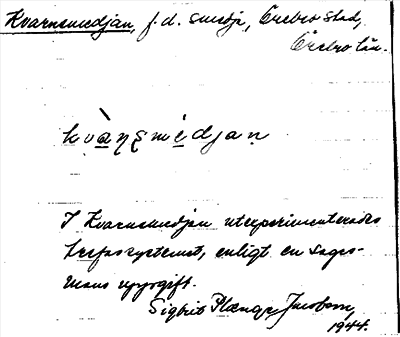 Kvarnsmedjan, f.d. smedja, Örebro stad,
Örebro län.
kvàṇṣmèdjaṇ
I Kvarnsmedjan utexperimenterades
trefassystemet, enligt en sages-
mans uppgift.
Sigbrit Plænge Jacobson,
1944.